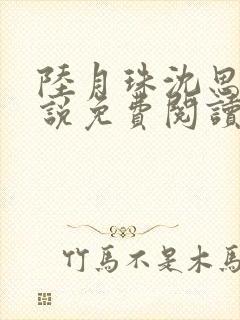 陸月珠沈思
說免費閱讀
竹馬不是木馬